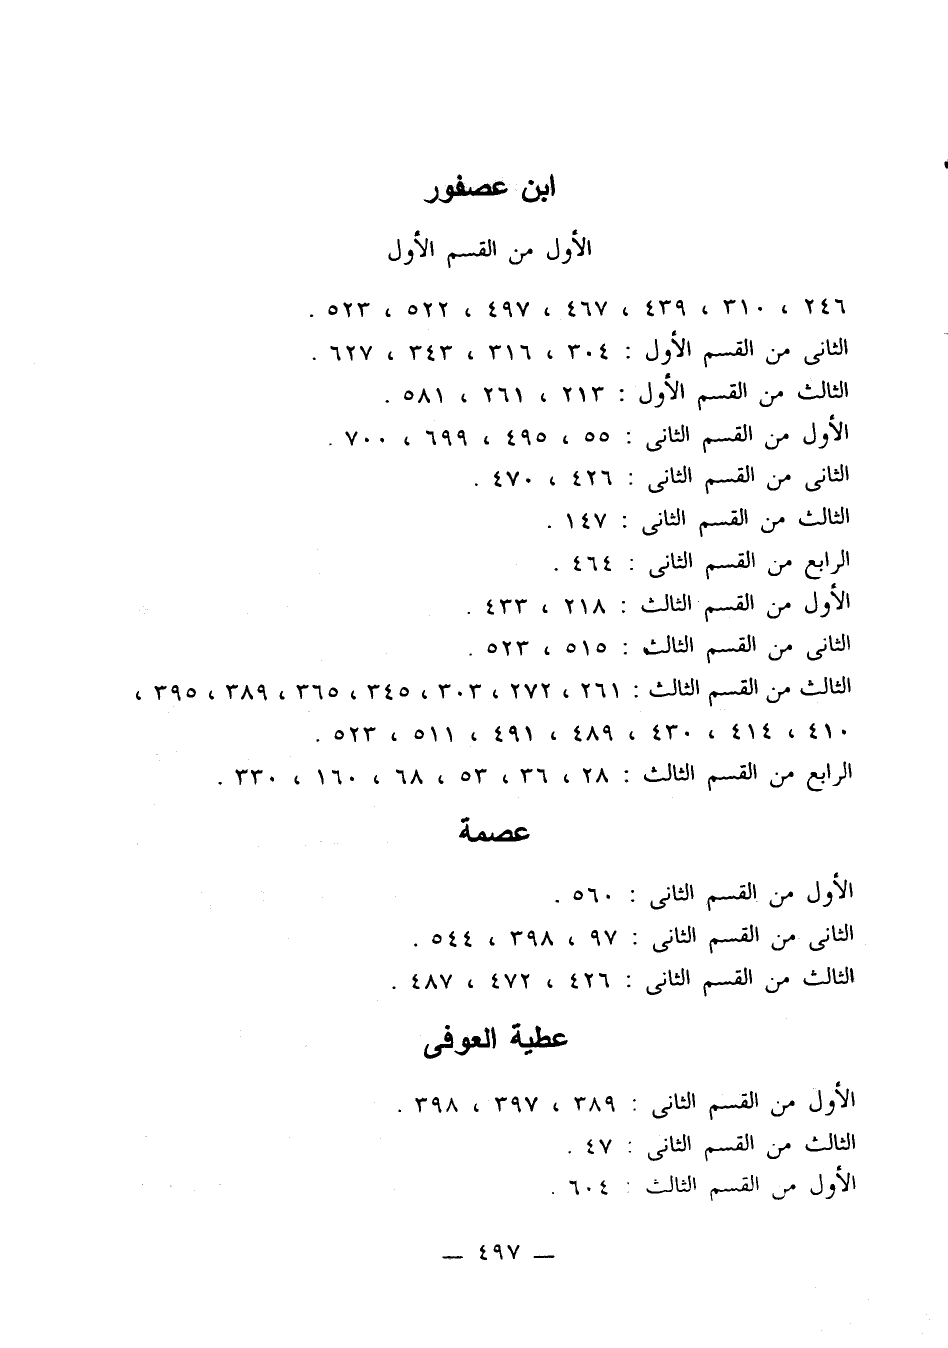 ابن عصفور
الأول من القسم الأول
٢٤٦ ، ٣١٠ ، ٤٣٩ ، ٤٦٧ ، ٤٩٧ ، ٥٢٢ ، ٥٢٣ .
الثانى من القسم الأول : ٣٠٤ ، ٣١٦ ، ٣٤٣ ، ٦٢٧ .
الثالث من القسم الأول : ٢١٣ ، ٢٦١ ، ٥٨١ .
الأول من القسم الثانى : ٥٥ ، ٤٩٥ ، ٦٩٩ ، ٧٠٠ .
الثانى من القسم الثانى : ٤٢٦ ، ٤٧٠ .
الثالث من القسم الثانى : ١٤٧ .
الرابع من القسم الثانى : ٤٦٤ .
الأول من القسم الثالث : ٢١٨ ، ٤٣٣ .
الثانى من القسم الثالث : ٥١٥ ، ٥٢٣ .
الثالث من القسم الثالث : ٢٦١ ، ٢٧٢ ، ٣٠٣ ، ٣٤٥ ، ٣٦٥ ، ٣٨٩ ، ٣٩٥ ،
٤١٠ ، ٤١٤ ، ٤٣٠ ، ٤٨٩ ، ٤٩١ ، ٥١١ ، ٥٢٣ .
الرابع من القسم الثالث : ٢٨ ، ٣٦ ، ٥٣ ، ٦٨ ، ١٦٠ ، ٣٣٠ .
عصمة
الأول من القسم الثانى : ٥٦٠ .
الثانى من القسم الثانى : ٩٧ ، ٣٩٨ ، ٥٤٤ .
الثالث من القسم الثانى : ٤٢٦ ، ٤٧٢ ، ٤٨٧ .
عطية العوفى
الأول من القسم الثانى : ٣٨٩ ، ٣٩٧ ، ٣٩٨ .
الثالث من القسم الثانى : ٤٧ .
الأول من القسم الثالث : ٦٠٤ .
— ٤٩٧ —